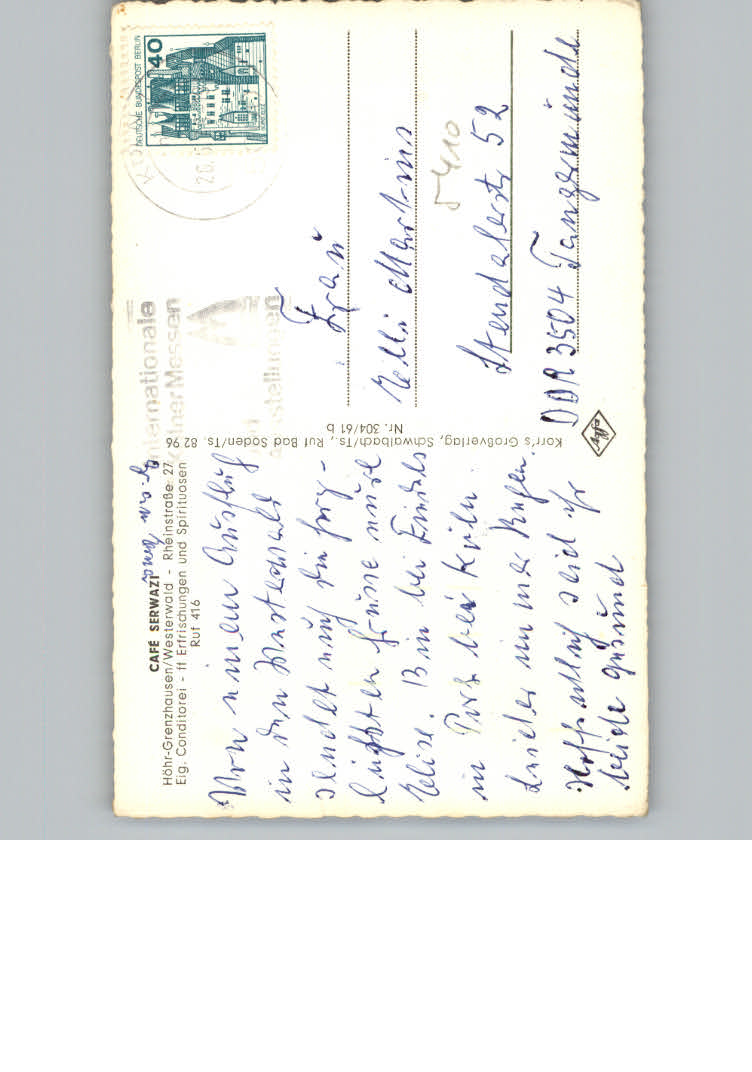 CAFÉ SERWAZI
Höhr-Grenzhausen/Westerwald - Rheinstraße 27
Eig. Conditorei - ff Erfrischungen und Spirituosen
Ruf 416
Von einem Ausflug
in den Westerwald
sendet euch die herz-
lichsten Grüsse eure
Elise. Bin bei
in Porz bei Köln.
Leider immer Regen.
Hoffentlich seid ihr
beide gesund
Korr's Großverlag, Schwalbach/Ts., Ruf Bad Soden/Ts. 82 96
Nr. 304/61 b
DEUTSCHE BUNDESPOST BERLIN
40
Internationale
Kölner Messen
und
Ausstellungen
Frau
Elli Martins
5410
Stendalerstr 52
DDR 3504 Tangermünde